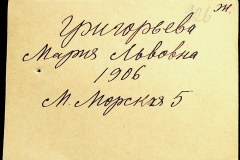 ж.
Григорьева
Мария Львовна
1906
М Морская 5